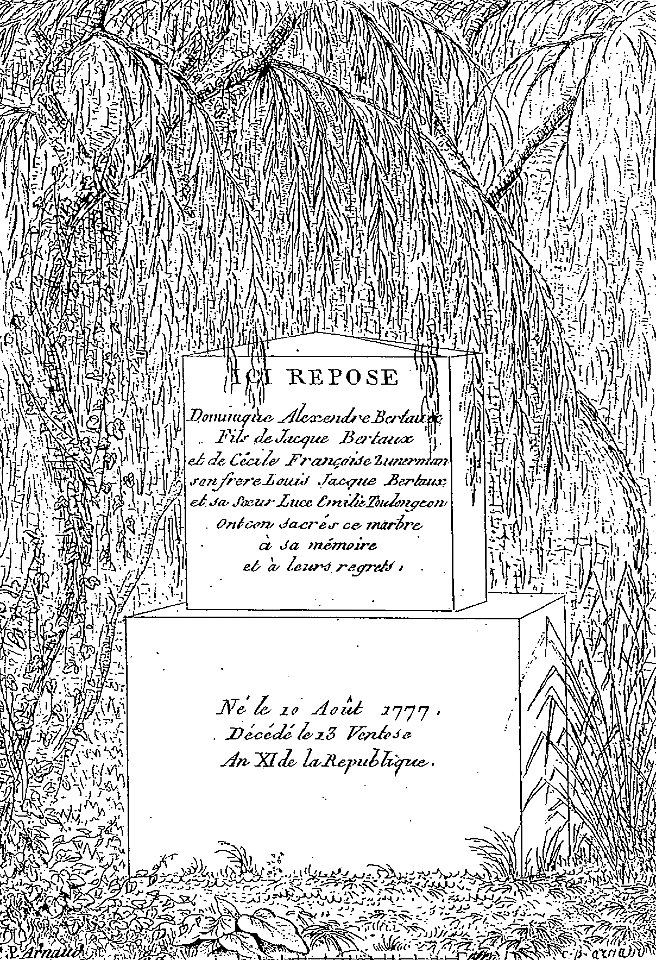 ICI REPOSE
Dominique Alexendre Bertaux
Fils de Jacque Bertaux
et de Cécile Françoise Zunerman
son frere Louis Jacque Bertaux
et sa Sœur Luce Emilie Toulongeon
Ont con sacrés ce marbre
à sa mémoire
et à leurs regrets.
Né le 10 Août 1777.
Décédé le 13 Ventose
An XI de la Republique.
Arnaud